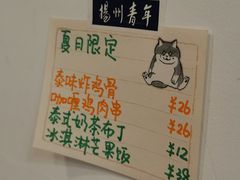 揚州青年
夏日限定
泰味炸鸡骨 ¥26
咖喱鸡肉串 ¥26
泰式奶茶布丁 ¥12
冰淇淋芒果饭 ¥38